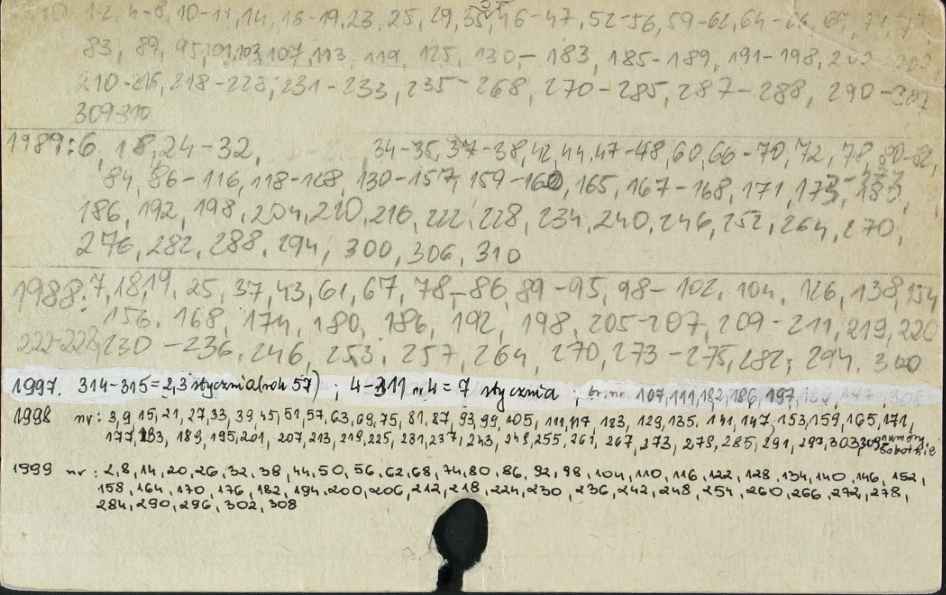 1-2, 4-8, 10-11, 14, 16-19, 23, 25, 29, 35, 46-47, 52-56, 59-62, 64-
83, 89, 95, 101, 103, 107, 113, 119, 125, 130-183, 185-189, 191-198,
210-216, 218-228, 231-233, 235-268, 270-285, 287-288, 290-
309-310
1989: 6, 18, 24-32, 34-35, 37-38, 42, 44, 47-48, 60, 66-70, 72, 78, 80-82,
84, 86-116, 118-128, 130-157, 159-160, 165, 167-168, 171, 173-183,
186, 192, 198, 204, 210, 216, 222, 228, 234, 240, 246, 252, 264, 270,
276, 282, 288, 294, 300, 306, 310
1988: 7, 18, 19, 25, 37, 43, 61, 67, 78-86, 89-95, 98-102, 104, 126, 138, 154
156, 168, 174, 180, 186, 192, 198, 205-207, 209-211, 219, 220
222-228, 230-236, 246, 253, 257, 264, 270, 273-275, 282, 294, 300
1997. 314-315=2,3 stycznia (rok 57) ; 4-311 nr 4 = 7 stycznia ; 107, 111, 182, 186, 197,
1998 nr: 3, 9, 15, 21, 27, 33, 39, 45, 51, 57, 63, 69, 75, 81, 87, 93, 99, 105, 111, 117, 123, 129, 135, 141, 147, 153, 159, 165, 171,
177, 183, 189, 195, 201, 207, 213, 219, 225, 231, 237, 243, 249, 255, 261, 267, 273, 279, 285, 291, 297, 303, 309 numery sobotnie
1999 nr: 2, 8, 14, 20, 26, 32, 38, 44, 50, 56, 62, 68, 74, 80, 86, 92, 98, 104, 110, 116, 122, 128, 134, 140, 146, 152,
158, 164, 170, 176, 182, 194, 200, 206, 212, 218, 224, 230, 236, 242, 248, 254, 260, 266, 272, 278,
284, 290, 296, 302, 308